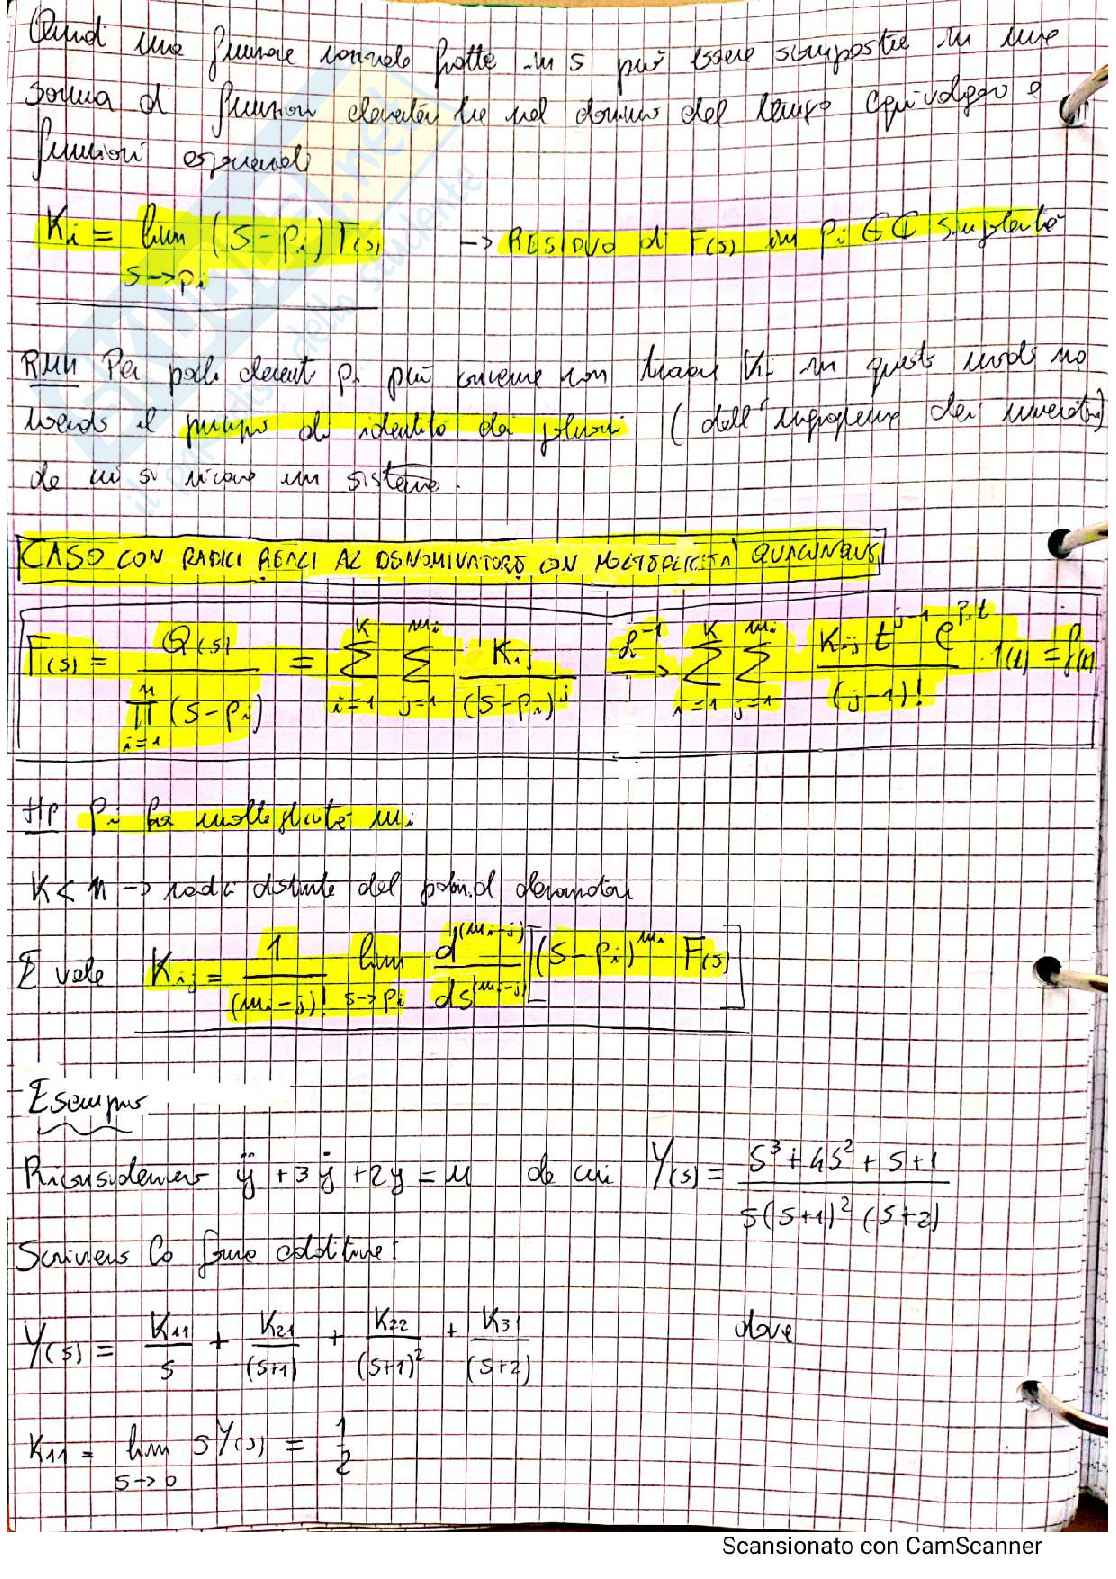 Quindi una funzione razionale fratta in s può essere scomposta in una
somma di funzioni elementari che nel dominio del tempo equivalgono a
funzioni esponenziali
Ki = lim (s-pi) F(s) → RESIDUO di F(s) in pi ∈ ℂ singolarità
s→pi
Per poli pi può convenire non trovare Ki in questo modo ma
il principio di identità dei polinomi ( dell'uguaglianza dei numeratori)
da cui si ricava un sistema.
CASO CON RADICI REALI AL DENOMINATORE CON MOLTEPLICITA' QUALUNQUE
F(s) = Q(s) / ∏_{i=1}^{n} (s-pi) = ∑_{i=1}^{K} ∑_{j=1}^{mi} Kij / (s-pi)^j → ℒ^-1 ∑_{i=1}^{K} ∑_{j=1}^{mi} Kij t^{j-1} e^{pi t} / (j-1)! · 1(t) = f(t)
HP pi ha molteplicità mi
K < n → radici distinte del polin. al denominatore
E vale Kij = 1 / (mi-j)! lim_{s→pi} d^(mi-j) / ds^(mi-j) [(s-pi)^mi F(s)]
Esempio
Riconsideriamo ÿ + 3ẏ + 2y = u da cui Y(s) = s³ + 4s² + s + 1 / s(s+1)² (s+2)
Scriviamo la forma additiva:
Y(s) = K11 / s + K21 / (s+1) + K22 / (s+1)² + K31 / (s+2) dove
K11 = lim_{s→0} sY(s) = 1/2
Scansionato con CamScanner